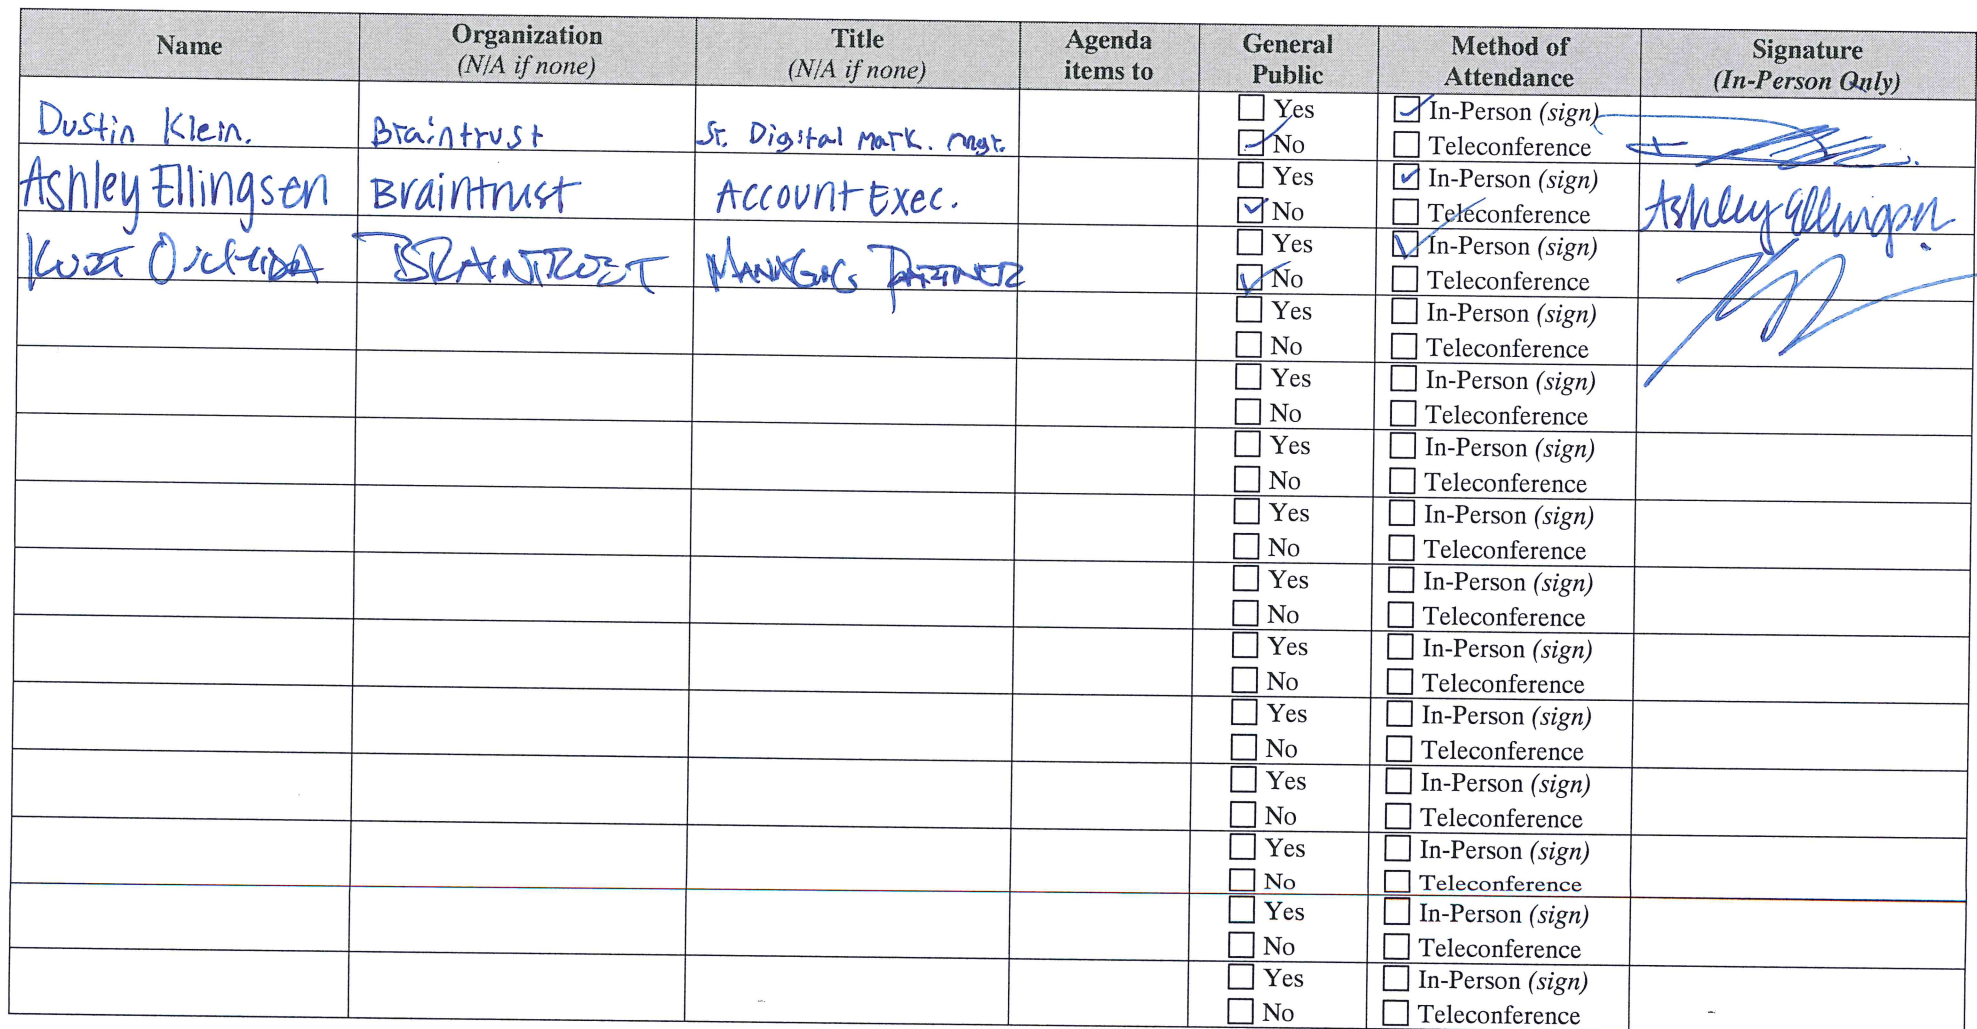 Name Organization (N/A if none) Title (N/A if none) Agenda items to General Public Method of Attendance Signature (In-Person Only)
Dustin Klein. Braintrust Sr. Digital Mark. mngr. Yes No In-Person (sign) Teleconference
Ashley Ellingsen Braintrust Account Exec. Yes No In-Person (sign) Teleconference Ashley Ellingsen
Kurt Ouchida BRAINTRUST MANAGING PARTNER Yes No In-Person (sign) Teleconference
Yes No In-Person (sign) Teleconference
Yes No In-Person (sign) Teleconference
Yes No In-Person (sign) Teleconference
Yes No In-Person (sign) Teleconference
Yes No In-Person (sign) Teleconference
Yes No In-Person (sign) Teleconference
Yes No In-Person (sign) Teleconference
Yes No In-Person (sign) Teleconference
Yes No In-Person (sign) Teleconference
Yes No In-Person (sign) Teleconference
Yes No In-Person (sign) Teleconference